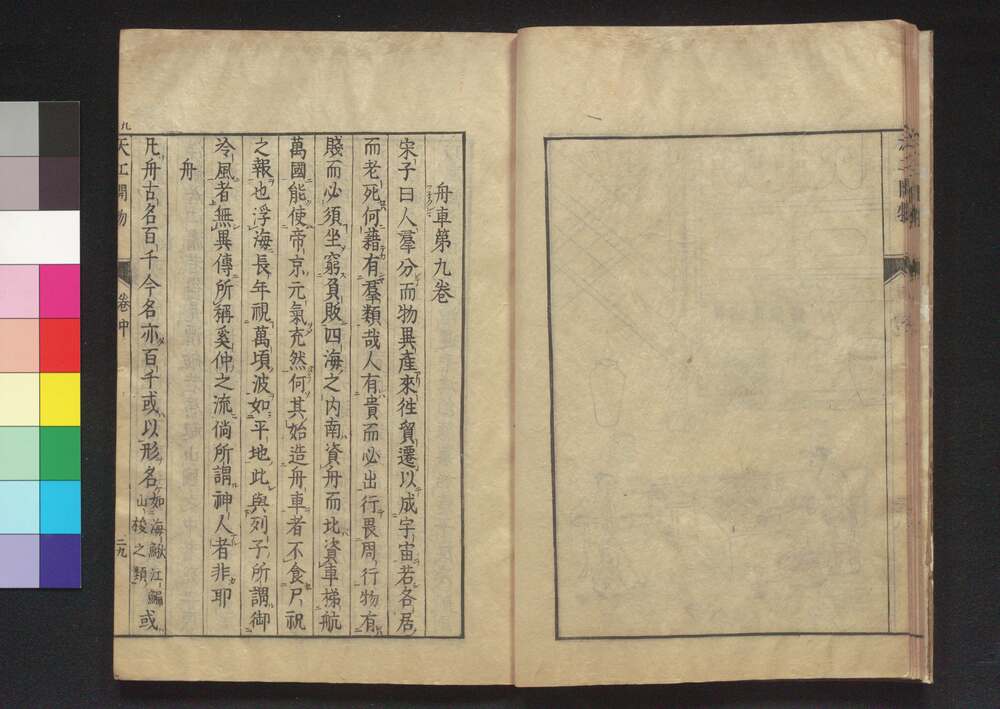 天工開物
舟車第九卷
宋子曰人羣分而物異產來徃貿遷以成宇宙若各居
而老死何藉有羣類哉人有貴而必出行畏周行物有
賤而必須坐窮負販四海之内南資舟而北資車梯航
萬國能使帝京元氣充然何其始造舟車者不食尸祝
之報也浮海長年視萬頃波如平地此與列子所謂御
冷風者無異傳所稱奚仲之流倘所謂神人者非耶
舟
凡舟古名百千今名亦百千或以形名如海鰍江鯿山梭之類或
天工開物
卷中
二九